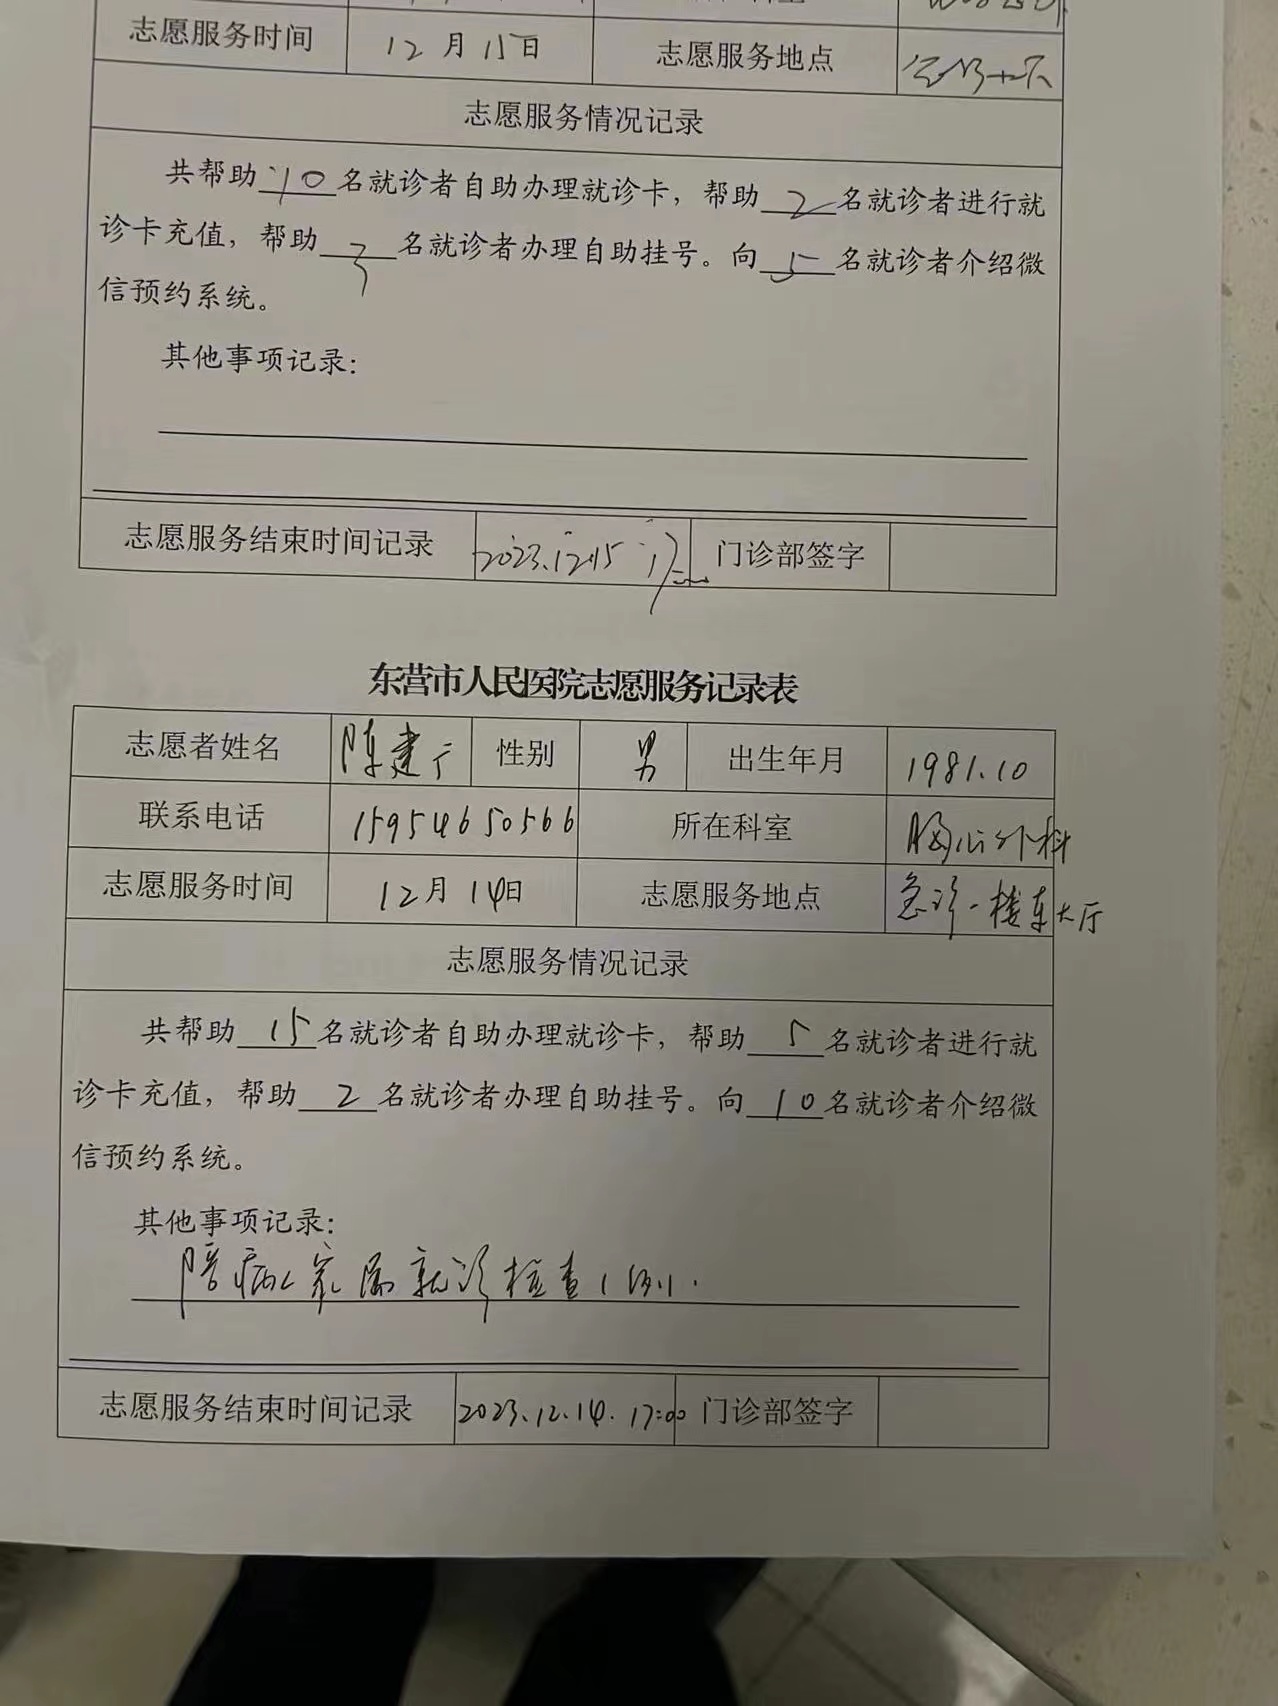 志愿服务时间 12月15日 志愿服务地点
志愿服务情况记录
共帮助 10 名就诊者自助办理就诊卡，帮助 2 名就诊者进行就
诊卡充值，帮助 3 名就诊者办理自助挂号。向 5 名就诊者介绍微
信预约系统。
其他事项记录：
志愿服务结束时间记录 2023.12.15 17 门诊部签字
东营市人民医院志愿服务记录表
志愿者姓名 陈建广 性别 男 出生年月 1981.10
联系电话 15954650566 所在科室 胸心外科
志愿服务时间 12月14日 志愿服务地点 急诊一楼东大厅
志愿服务情况记录
共帮助 15 名就诊者自助办理就诊卡，帮助 5 名就诊者进行就
诊卡充值，帮助 2 名就诊者办理自助挂号。向 10 名就诊者介绍微
信预约系统。
其他事项记录：
陪病人家属就诊检查1例.
志愿服务结束时间记录 2023.12.14.17:00 门诊部签字